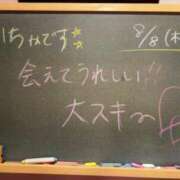 ちゃんです☆ 8/8(木)
会えてうれしい!!
大スキ〜